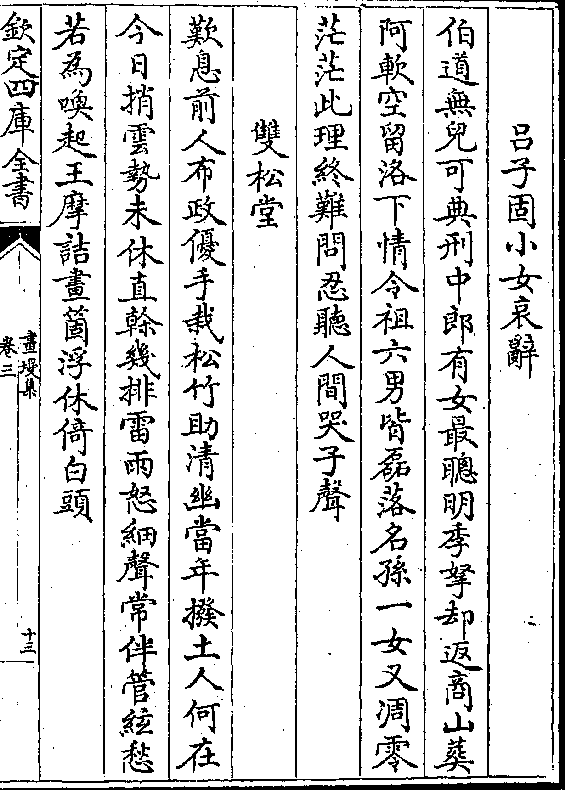 吕子固小女哀辭
伯道無兒可典刑中郎有女最聰明季孥却返商山葬
阿軟空留洛下情令祖六男皆磊落名孫一女又凋零
茫茫此理終難問忍聽人間哭子聲
雙松堂
歎息前人布政優手栽松竹助清幽當年撥土人何在
今日捎雲勢未休直幹幾排雷雨怒細聲常伴管絃愁
若為喚起王摩詰畫箇浮休倚白頭
欽定四庫全書
畫墁集
卷三
十三